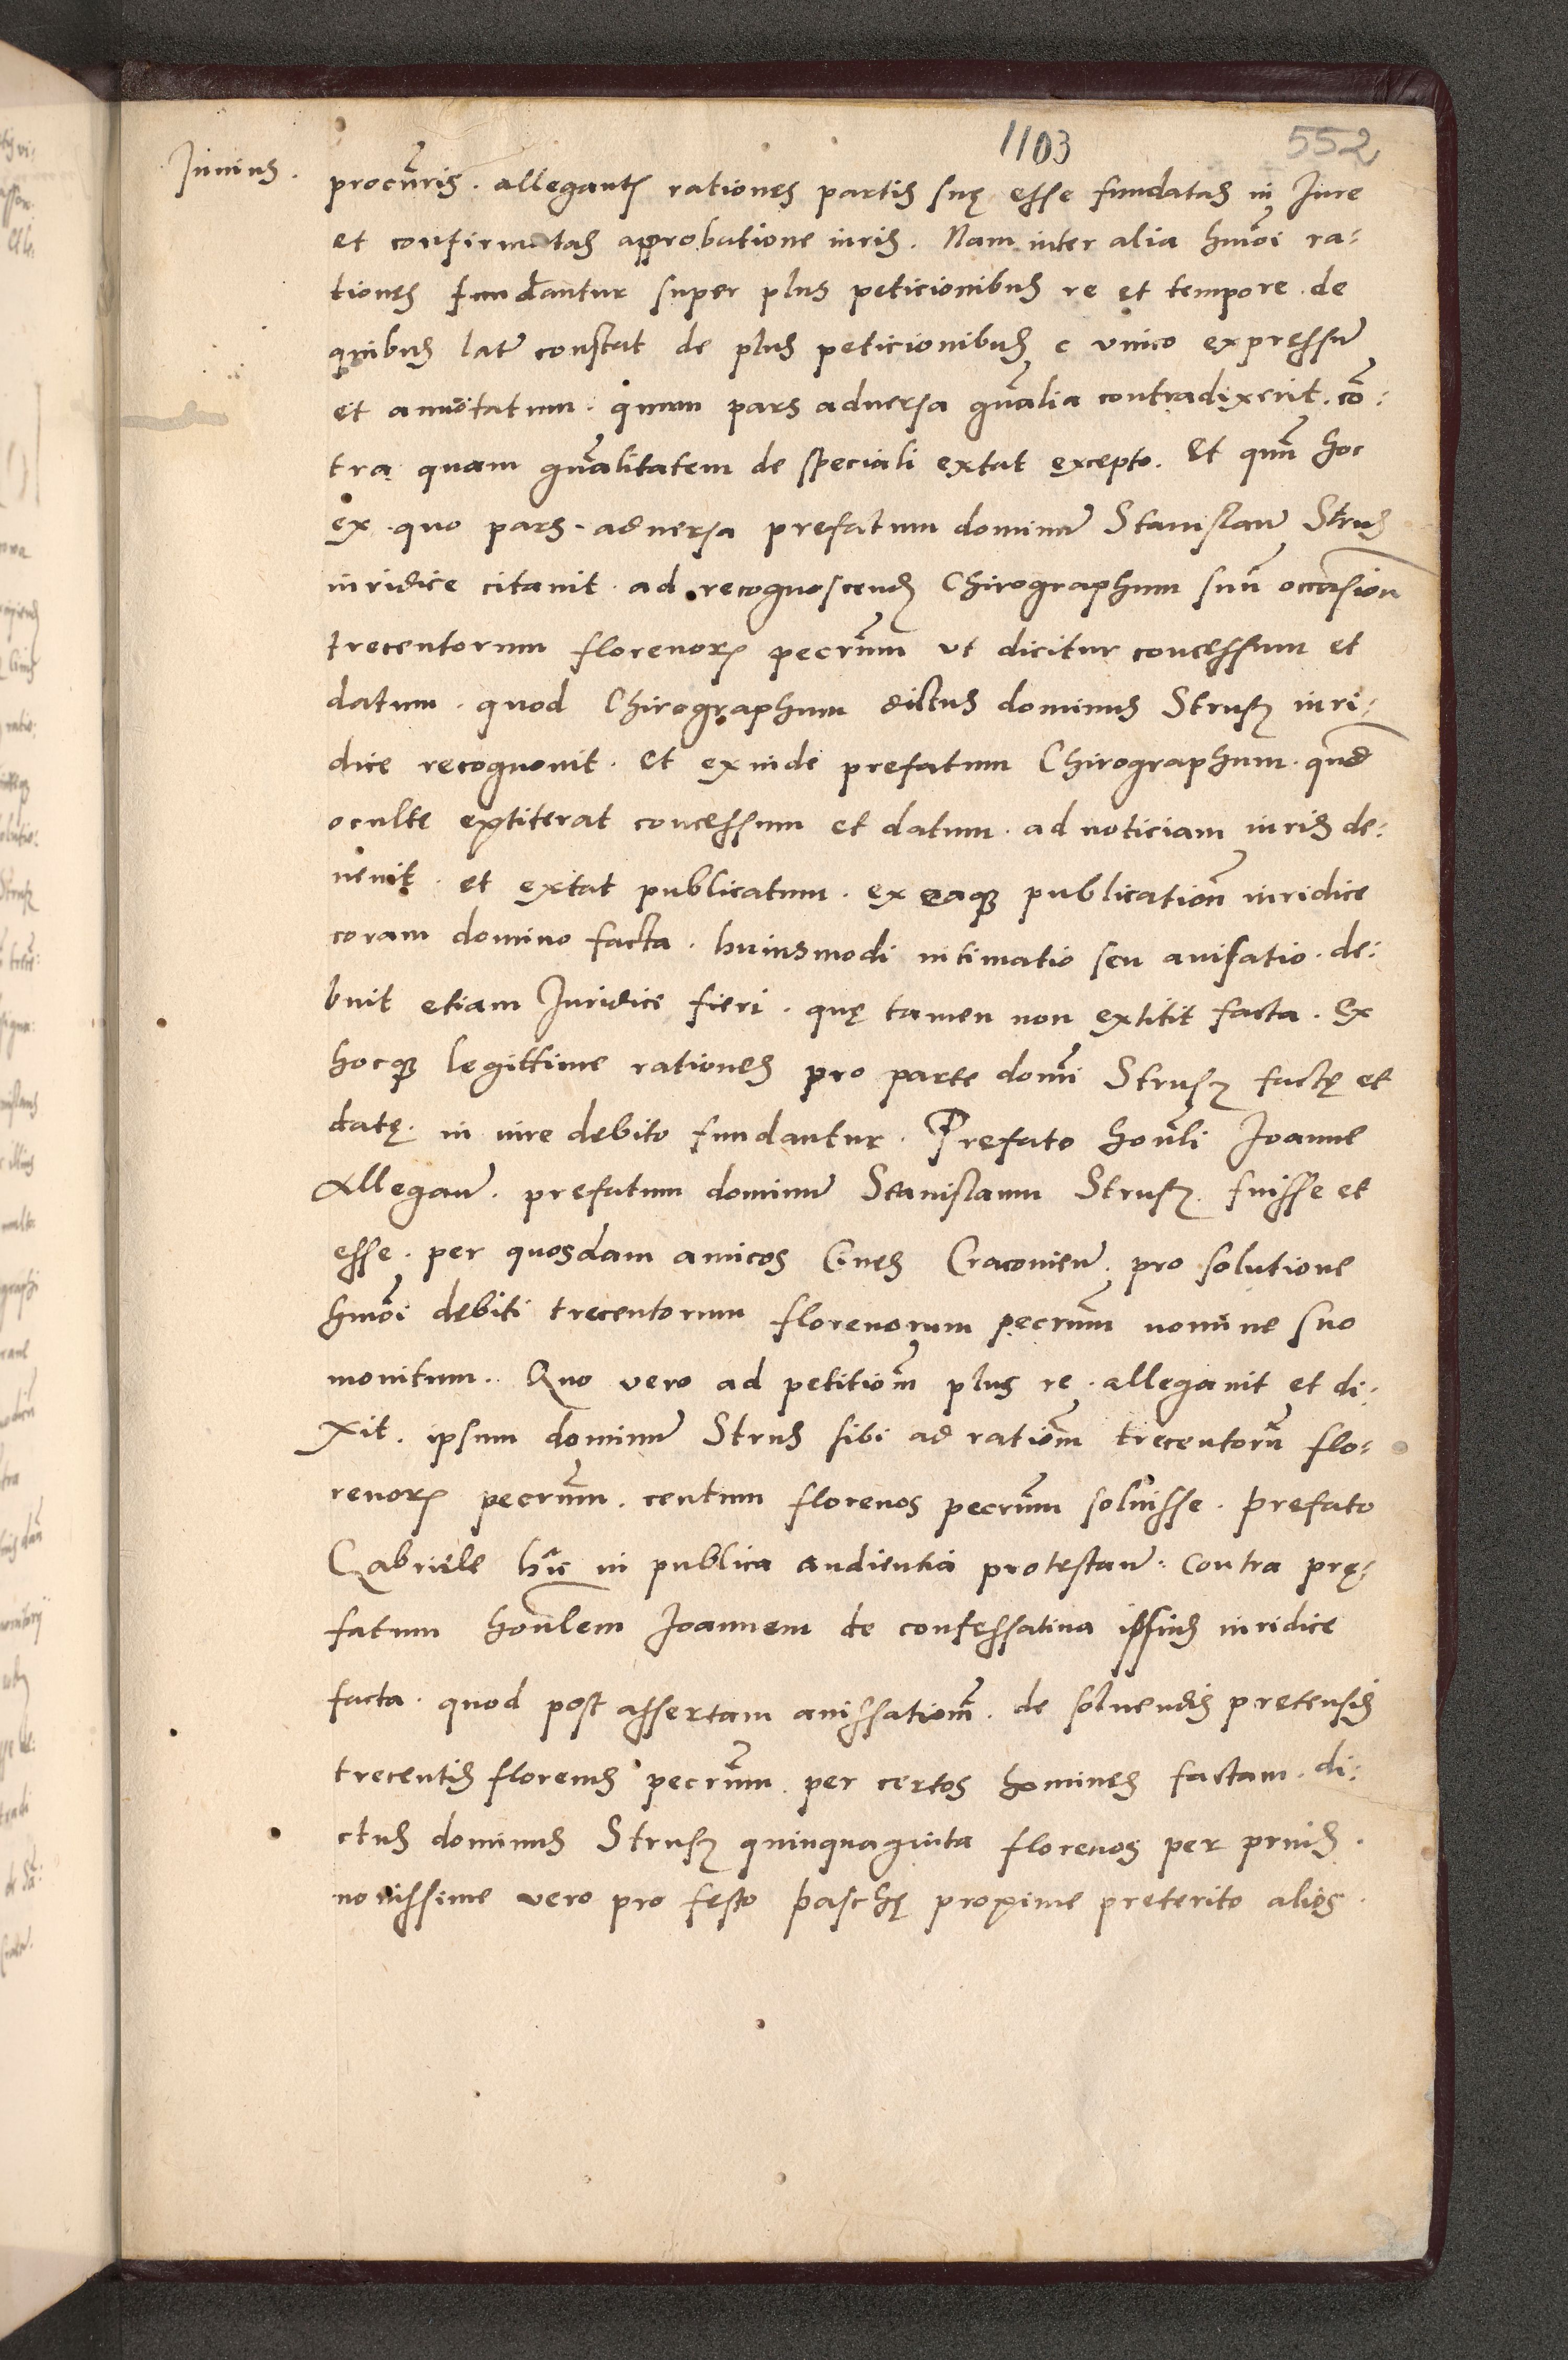 1103 552
Junius.
procuris. allegantis rationes partis suę esse fundatas in Jure
et confirmatas approbatione iuris. Nam inter alia hmoi ra:
tiones fundantur super plus peticionibus re et tempore. de
quibus late constat de plus peticionibus c vnico expressum
et annotatum. quam pars aduersa gnalia contradixerit. co:
tra quam gnalitatem de speciali extat excepto. Et qum hoc
ex quo pars aduersa prefatum dominum Stanislaum Strus
iuridice citauit ad recognoscendum Chirographum suum occasion
trecentorum florenorum pecrum vt dicitur concessum et
datum. quod Chirographum dictus dominus Strusz iuri:
dice recognouit. Et exinde prefatum Chirographum. quod
oculte extiterat concessum et datum. ad noticiam iuris de:
uenit. et extat publicatum. ex eaque publication iuridice
coram domino facta. huiusmodi intimatio seu auisatio. de:
buit etiam Juridice fieri. quę tamen non extitit facta. Ex
hocque legittime rationes pro parte domi Strusz factę et
datę. in iure debito fundantur. Prefato honli Joanne
Allegan. prefatum dominum Stanislaum Strusz. fuisse et
esse. per quosdam amicos Ciues Cracouien. pro solutione
hmoi debiti trecentorum florenorum pecrum nomine suo
monitum. Quo vero ad petitiom plus re. allegauit et di:
xit. ipsum dominum Strus sibi ad ratiom trecentorum flo:
renorum pecrum. centum florenos pecrum soluisse. Prefato
Gabriele huic in publica audientia protestan: contra prę:
fatum honlem Joannem de confessatiua ipsius iuridice
facta. quod post assertam auissatiom. de soluendis pretensis
trecentis florenis pecrum. per certos homines factam. di:
ctus dominus Strusz quinquaginta florenos per prius.
nouissime vero pro festo paschę proxime preterito alios.